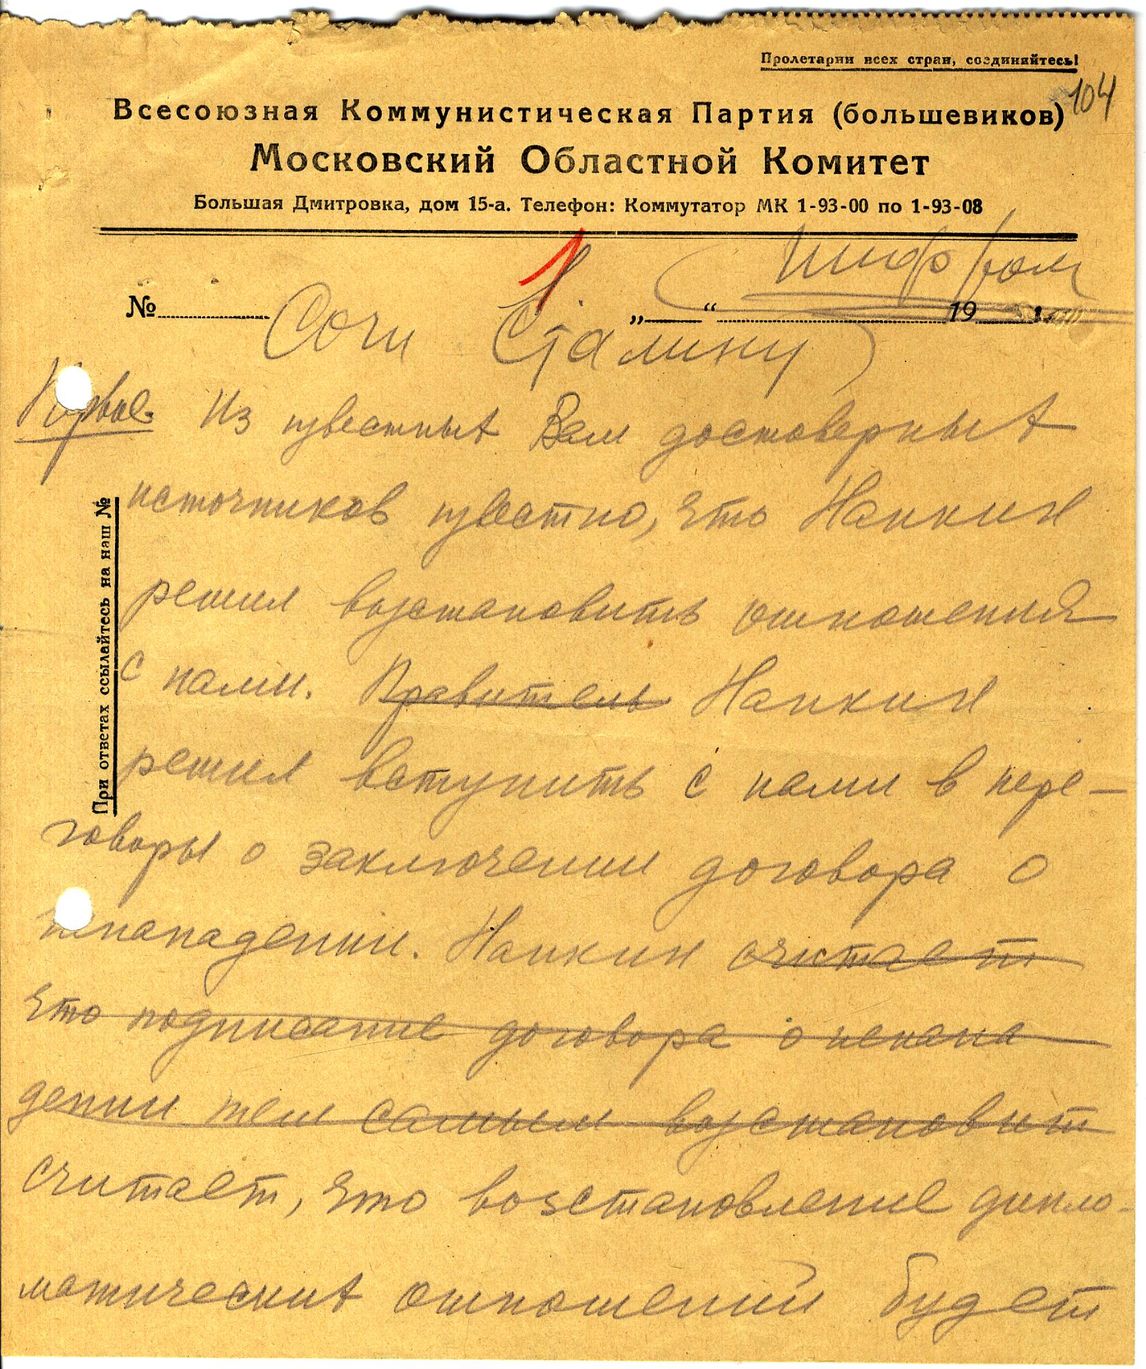 Пролетарии всех стран, соединяйтесь!
104
Всесоюзная Коммунистическая Партия (большевиков)
Московский Областной Комитет
Большая Дмитровка, дом 15-а. Телефон: Коммутатор МК 1-93-00 по 1-93-08
шифром
1
№ „ “ 19
Сочи Сталину
Первое. Из известных Вам достоверных
источников известно, что Нанкин
решил возстановить отношения
с нами. Правитель Нанкин
решил вступить с нами в пере-
говоры о заключении договора о
ненападении. Нанкин считает
что подписание договора о ненапа
дении тем самым возстановит
считает, что возстановление дипло-
матических отношений будет
При ответах ссылайтесь на наш №